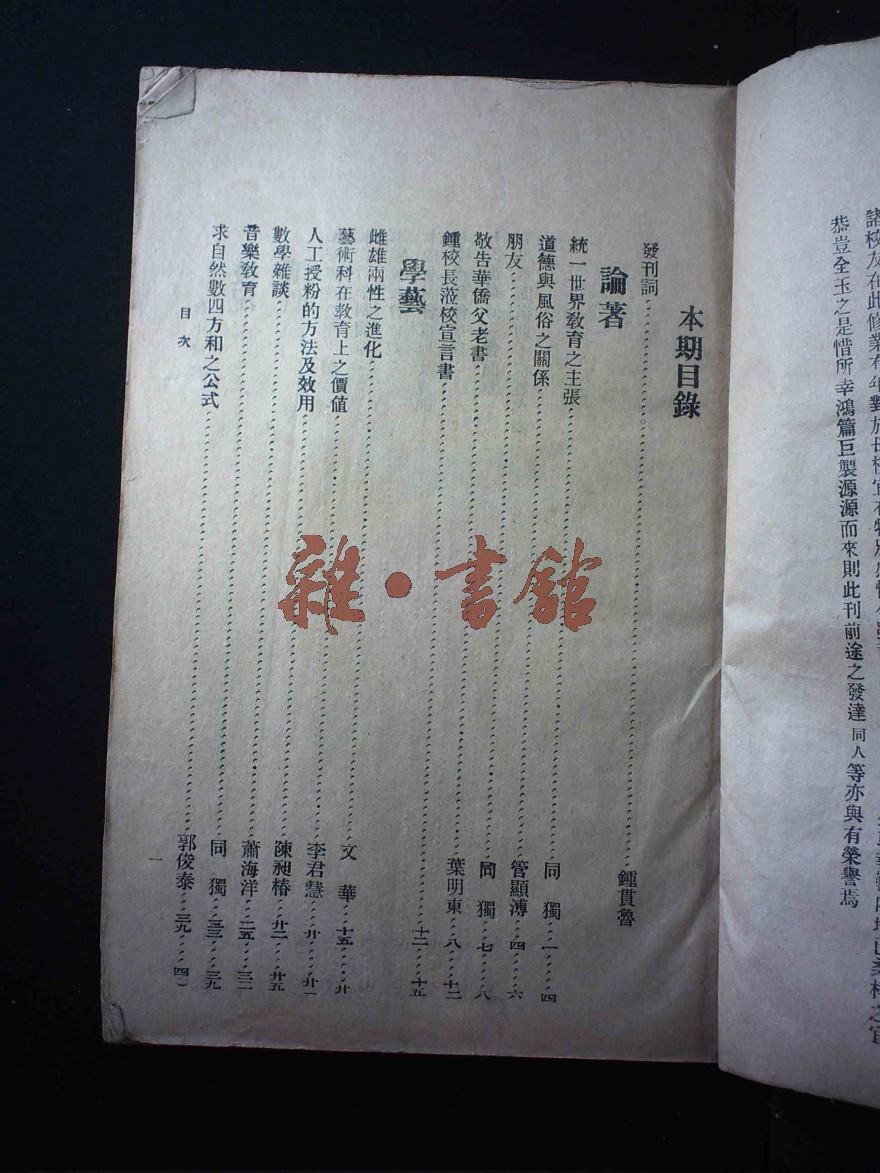 恭豈全玉之是惜所幸鴻篇巨製源源而來則此刊前途之發達同人等亦與有榮譽焉
本期目錄
發刊詞……鍾貫魯
論著
統一世界教育之主張……同獨 一……四
道德與風俗之關係……管顯溥 四……六
朋友……同獨 七……八
敬告華僑父老書……葉明東 八……十二
鍾校長蒞校宣言書……十二……十五
學藝
雌雄兩性之進化……文華 十五……廿
藝術科在教育上之價值……李君慧 廿……廿一
人工授粉的方法及效用……陳昶椿 廿二……廿五
數學雜談……蕭海洋 二五……三二
音樂教育……同獨 三三……三九
求自然數四方和之公式……郭俊泰 三九……四一
目次
一
雜·書館